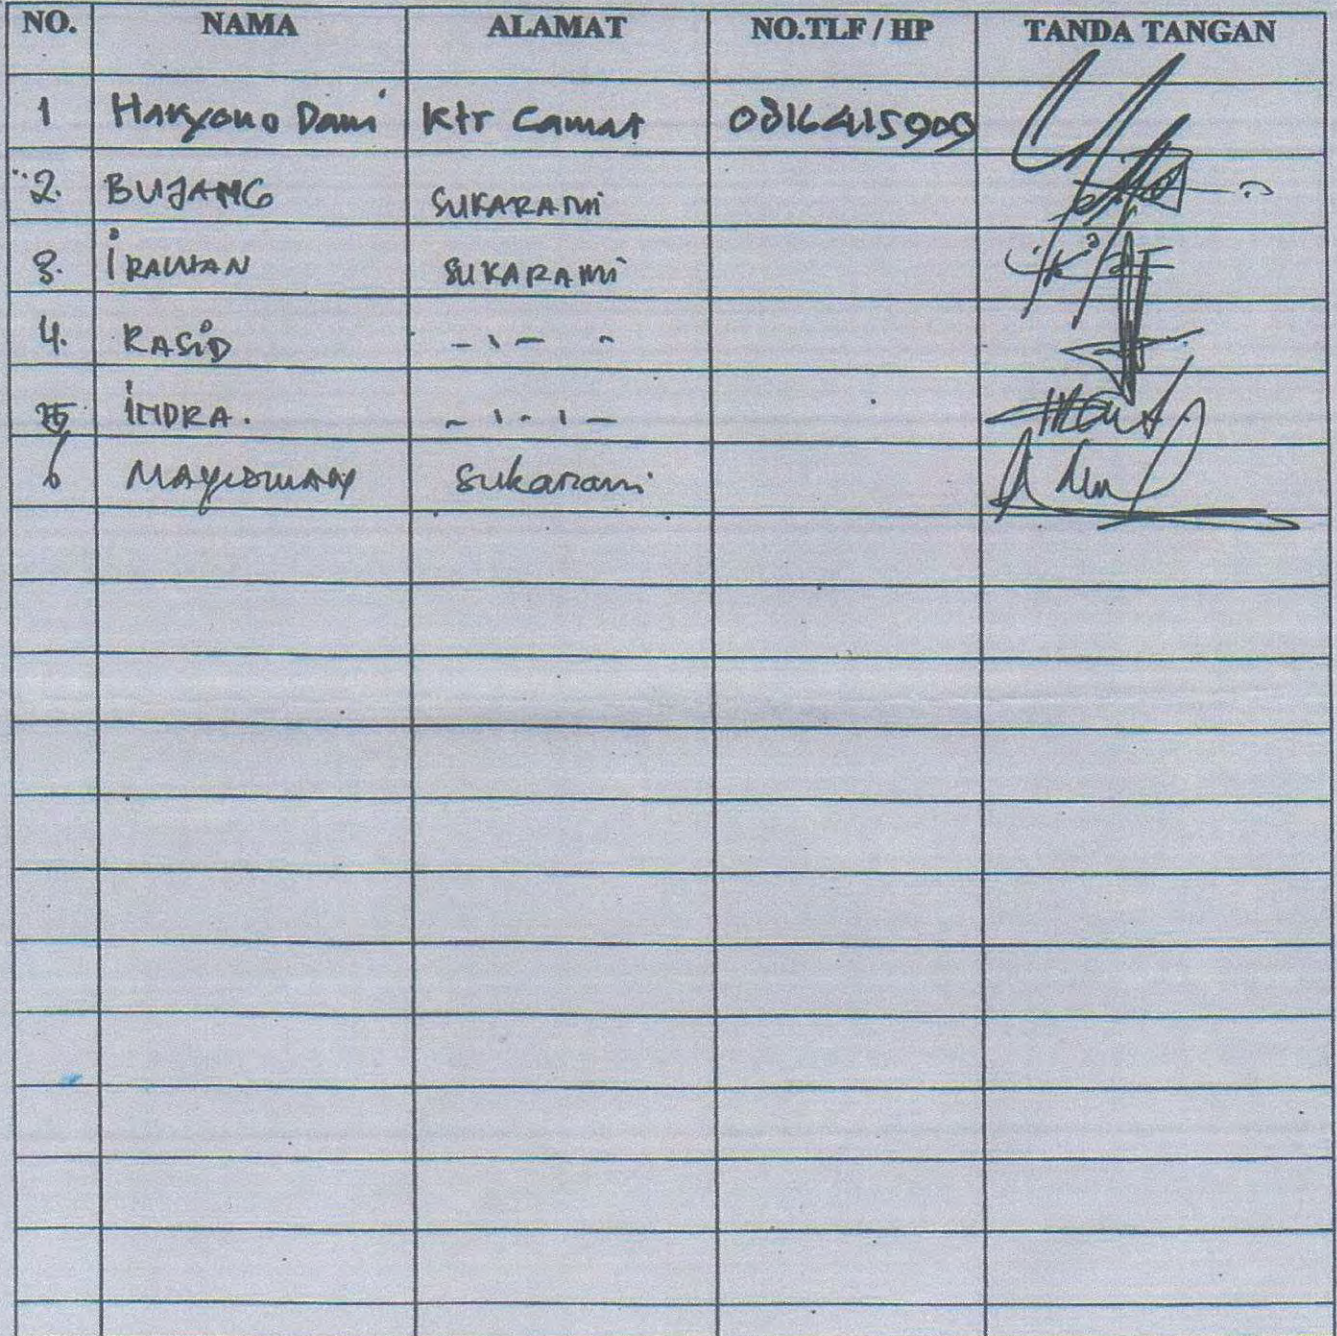 NO. NAMA ALAMAT NO.TLF / HP TANDA TANGAN
1 Haryono Dani Ktr Camat
2. BUJANG SUKARAMI
3. IRAWAN SUKARAMI
4. RASID - ۱ - ۱
5 INDRA. - ۱ - ۱ -
6 Sukarami